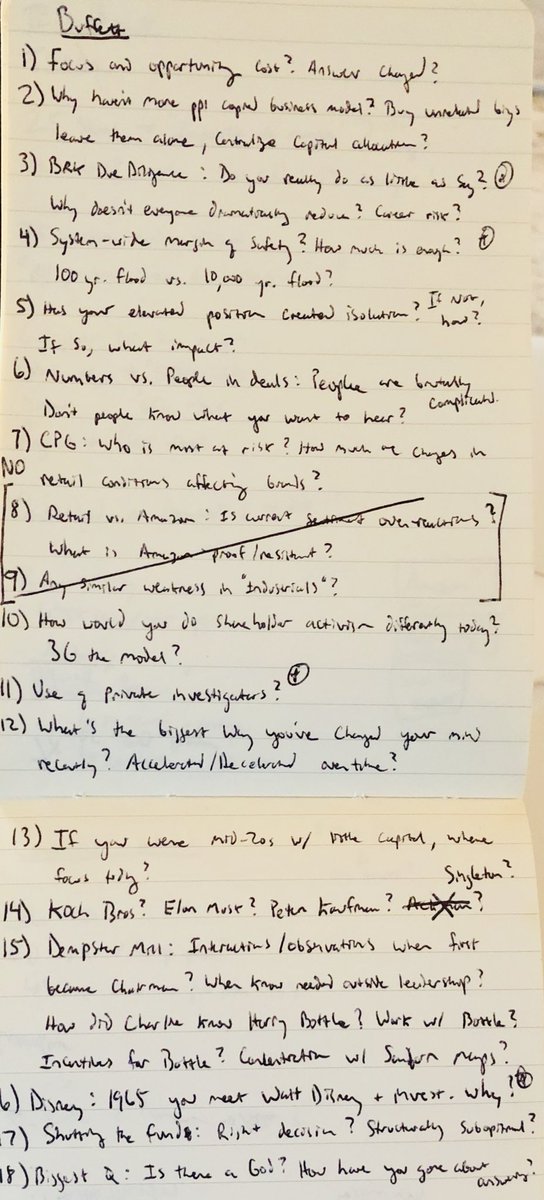 Buffett
1) Focus and opportunity cost? Answer changed?
2) Why haven't more ppl copied business model? Buy unrelated bizs
leave them alone, centralize capital allocation?
3) BRK Due Diligence: Do you really do as little as say?
Why doesn't everyone dramatically reduce? Career risk?
4) System-wide margin of safety? How much is enough?
100 yr. flood vs. 10,000 yr. flood?
5) Has your elevated position created isolation? If not, how?
If so, what impact?
6) Numbers vs. People in deals: People are brutally complicated.
Don't people know what you want to hear?
7) CPG: Who is most at risk? How much are changes in
NO
retail conditions affecting brands?
8) Retail vs. Amazon: Is current sentiment overreactions?
What is Amazon proof/resistant?
9) Any similar weakness in "Industrials"?
10) How would you do shareholder activism differently today?
3G the model?
11) Use of private investigators?
12) What's the biggest way you've changed your mind
recently? Accelerated/Decelerated over time?
13) If you were mid-20s w/ little capital, where
focus today?
Singleton?
14) Koch Bros? Elon Musk? Peter Kaufman? ?
15) Dempster Mill: Interactions/observations when first
became Chairman? When know needed outside leadership?
How did Charlie know Harry Bottle? Work w/ Bottle?
Incentives for Bottle? Concentration w/ Sanborn Maps?
6) Disney: 1965 you meet Walt Disney + invest. Why?
17) Shutting the funds: Right decision? Structurally suboptimal?
18) Biggest Q: Is there a God? How have you gone about answering?